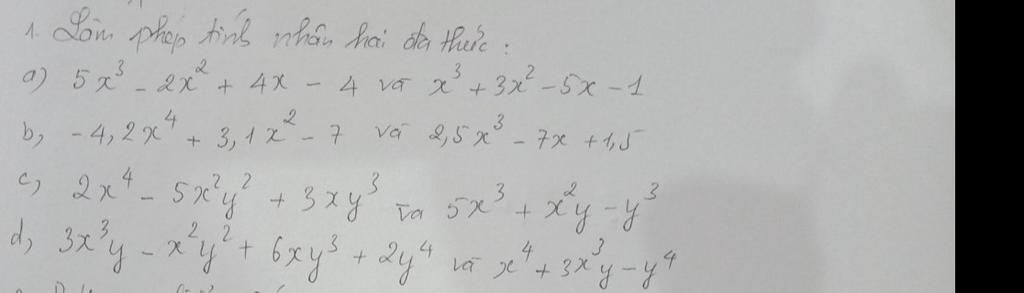 1. Làm phép tính nhân hai đa thức :
a) 5x³ - 2x² + 4x - 4 và x³ + 3x² - 5x - 1
b, -4,2x⁴ + 3,1x² - 7 và 2,5x³ - 7x + 1,5
c, 2x⁴ - 5x²y² + 3xy³ và 5x³ + x²y - y³
d, 3x³y - x²y² + 6xy³ + 2y⁴ và x⁴ + 3x³y - y⁴